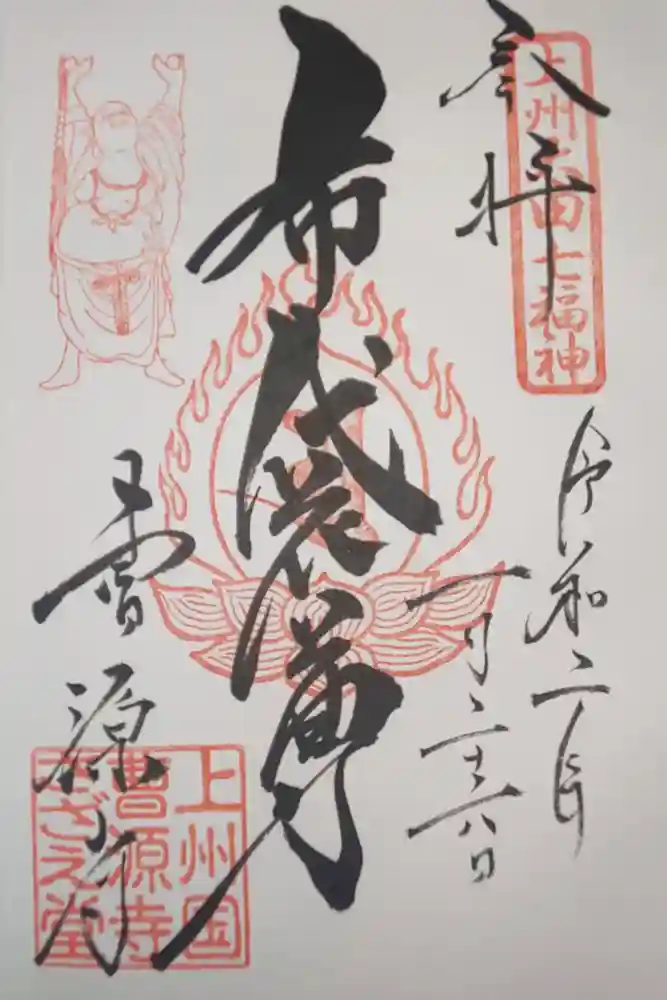 奉拝
上州太田七福神
令和二年
一月二十八日
布袋尊
曹源寺
上州国
曹源寺
さざえ堂